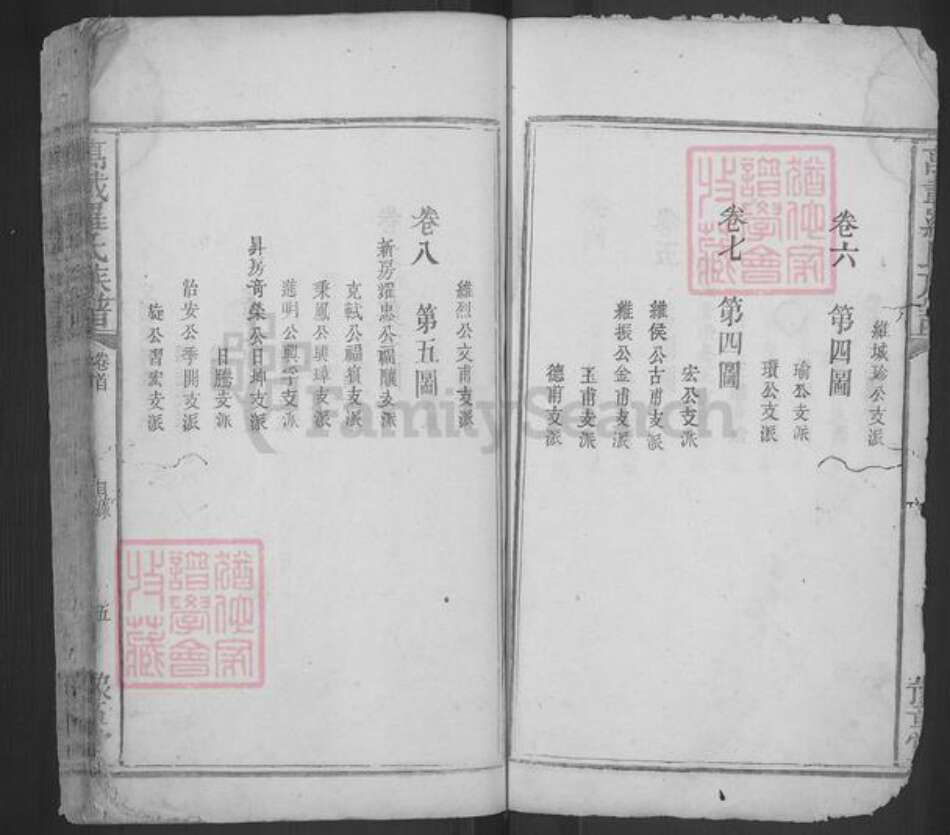 卷六 第四圖
維城瑜公支派
瑜公支派
瓊公支派
卷七 第四圖
宏公支派
維侯公古甫支派
維振公金甫支派
玉甫支派
德甫支派
維烈公文甫支派
卷八 第五圖
新房躍忠公福釀支派
克軾公福賓支派
秉鳳公興璋支派
蓮明公興孚支派
昇房奇榮公日坤支派
日騰支派
怡安公學開支派
旋公習宏支派
萬載羅氏族譜 卷首 目錄 五
猶他家譜學會收藏
猶他家譜學會收藏
FamilySearch